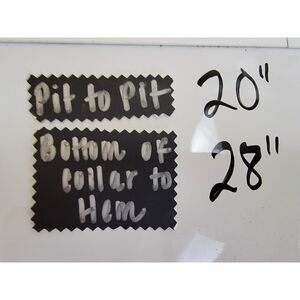 Pit to Pit 20"
Bottom of 28"
collar to
Hem